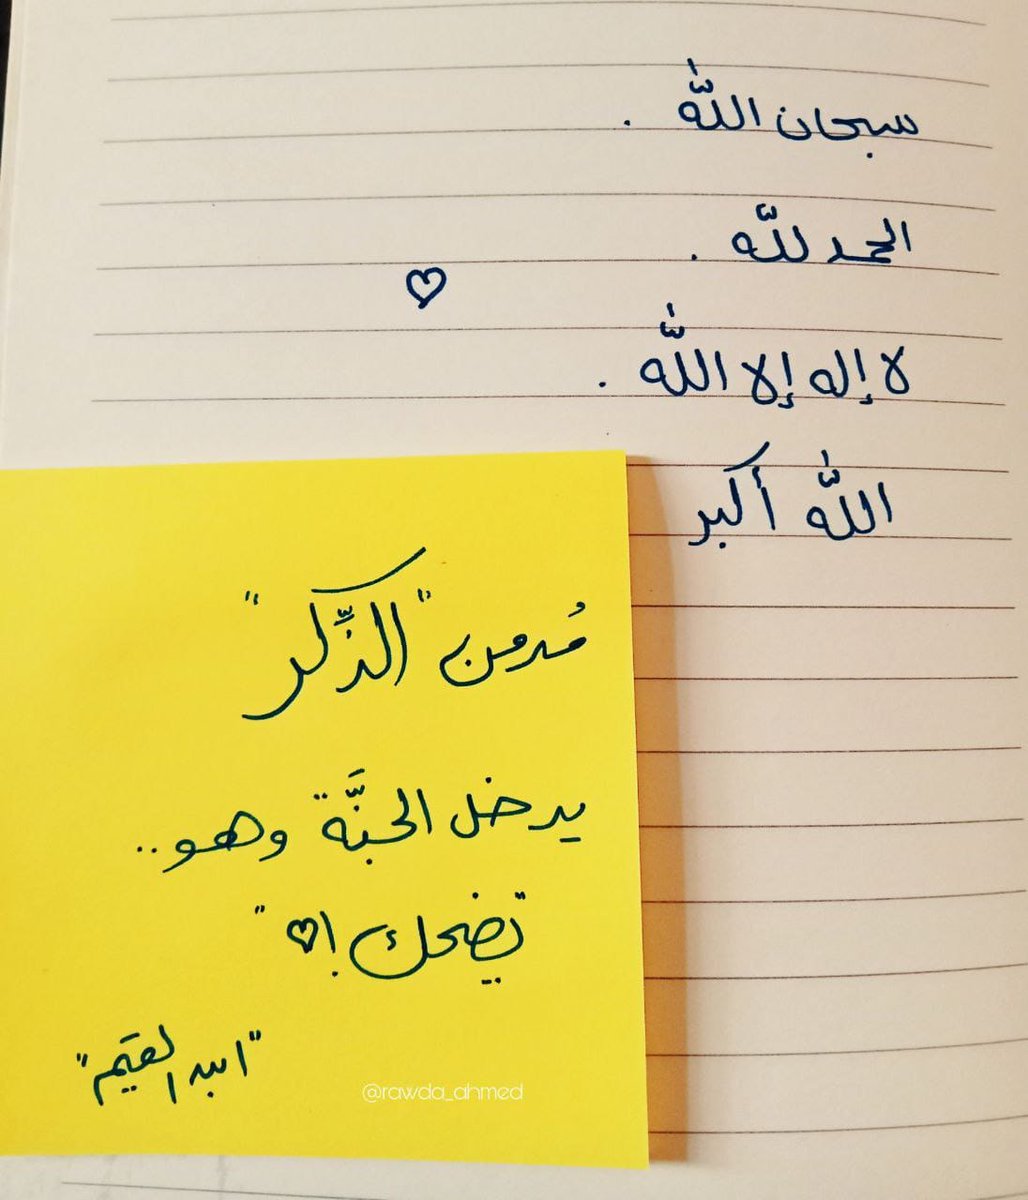 سبحان اللّٰه .
الحمد للّه .
لا إله إلا اللّٰه .
اللّٰه أكبر
مُدمن "الذِّكر"
يدخل الجنَّة وهو..
"يضحك !♡"
"ابن القيم"
@rawda_ahmed